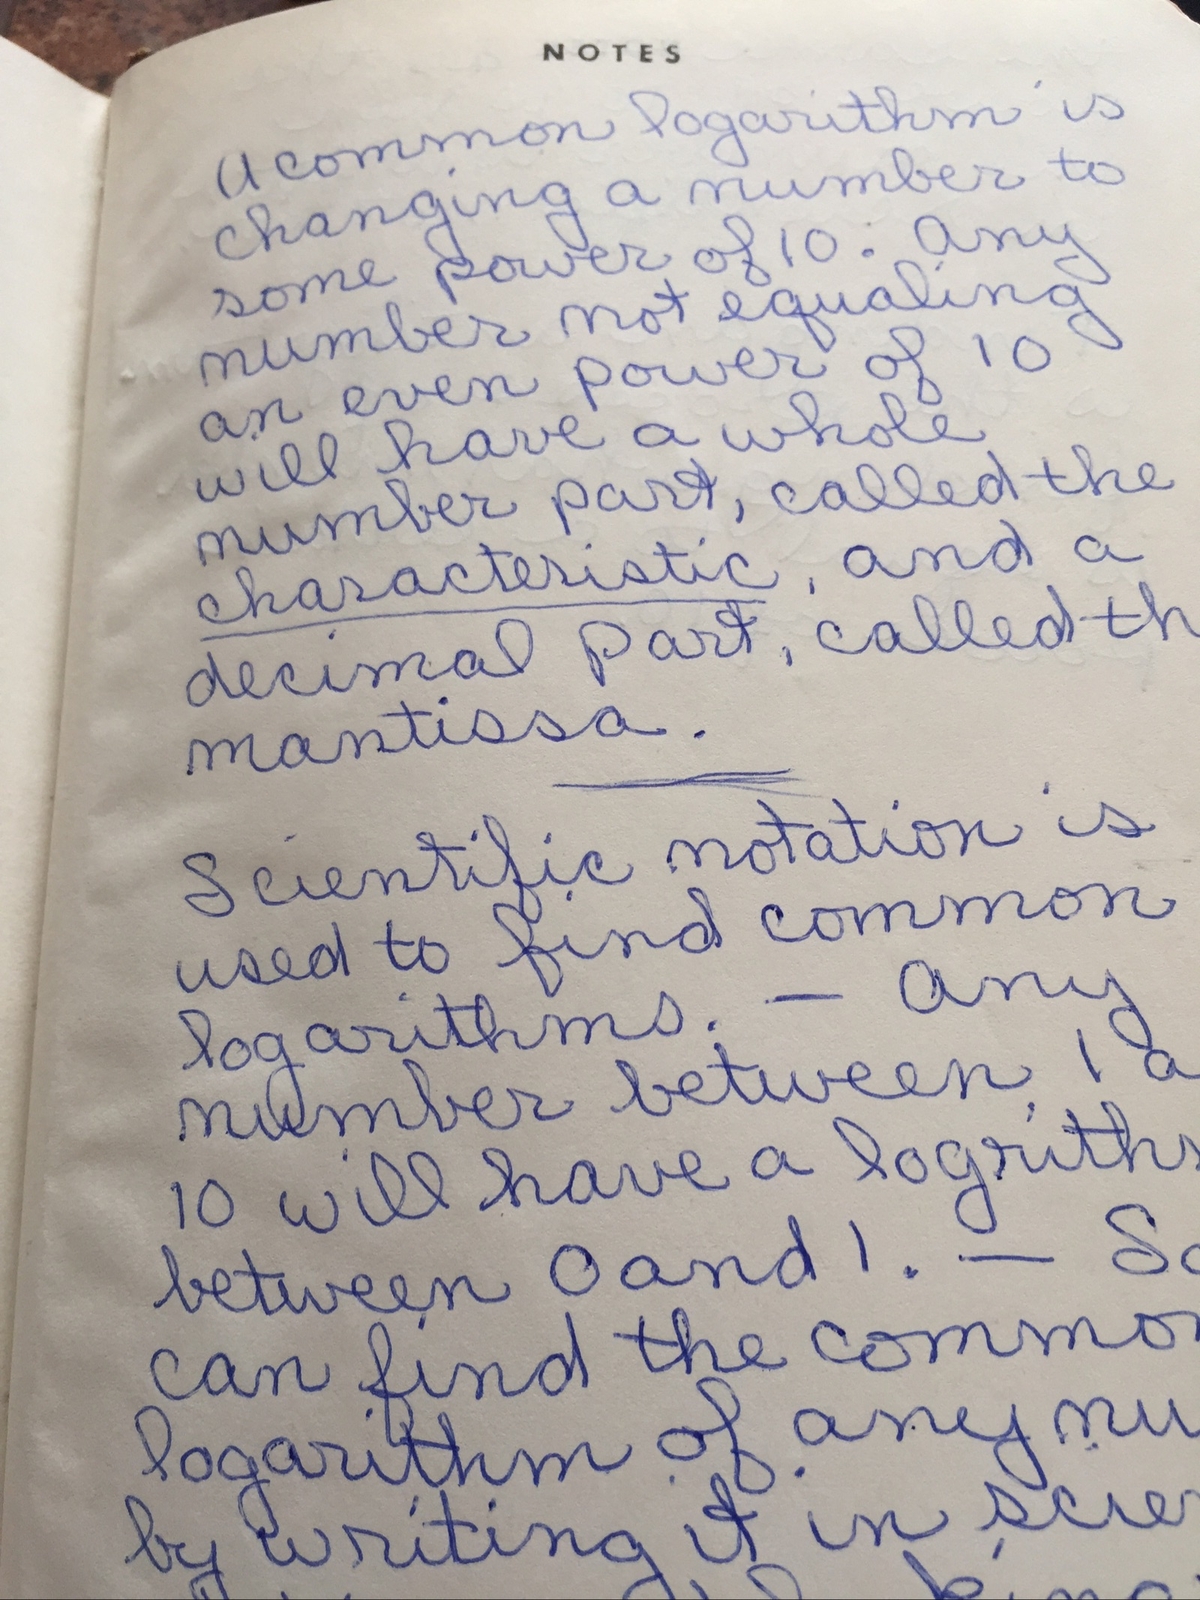 NOTES
A common logarithm is
changing a number to
some power of 10. Any
number not equaling
an even power of 10
will have a whole
number part, called the
characteristic, and a
decimal part, called th
mantissa.
Scientific notation is
used to find common
logarithms. — Any
number between 1 a
10 will have a logrithm
between 0 and 1. — So
can find the common
logarithm of any nu
by writing it in scien